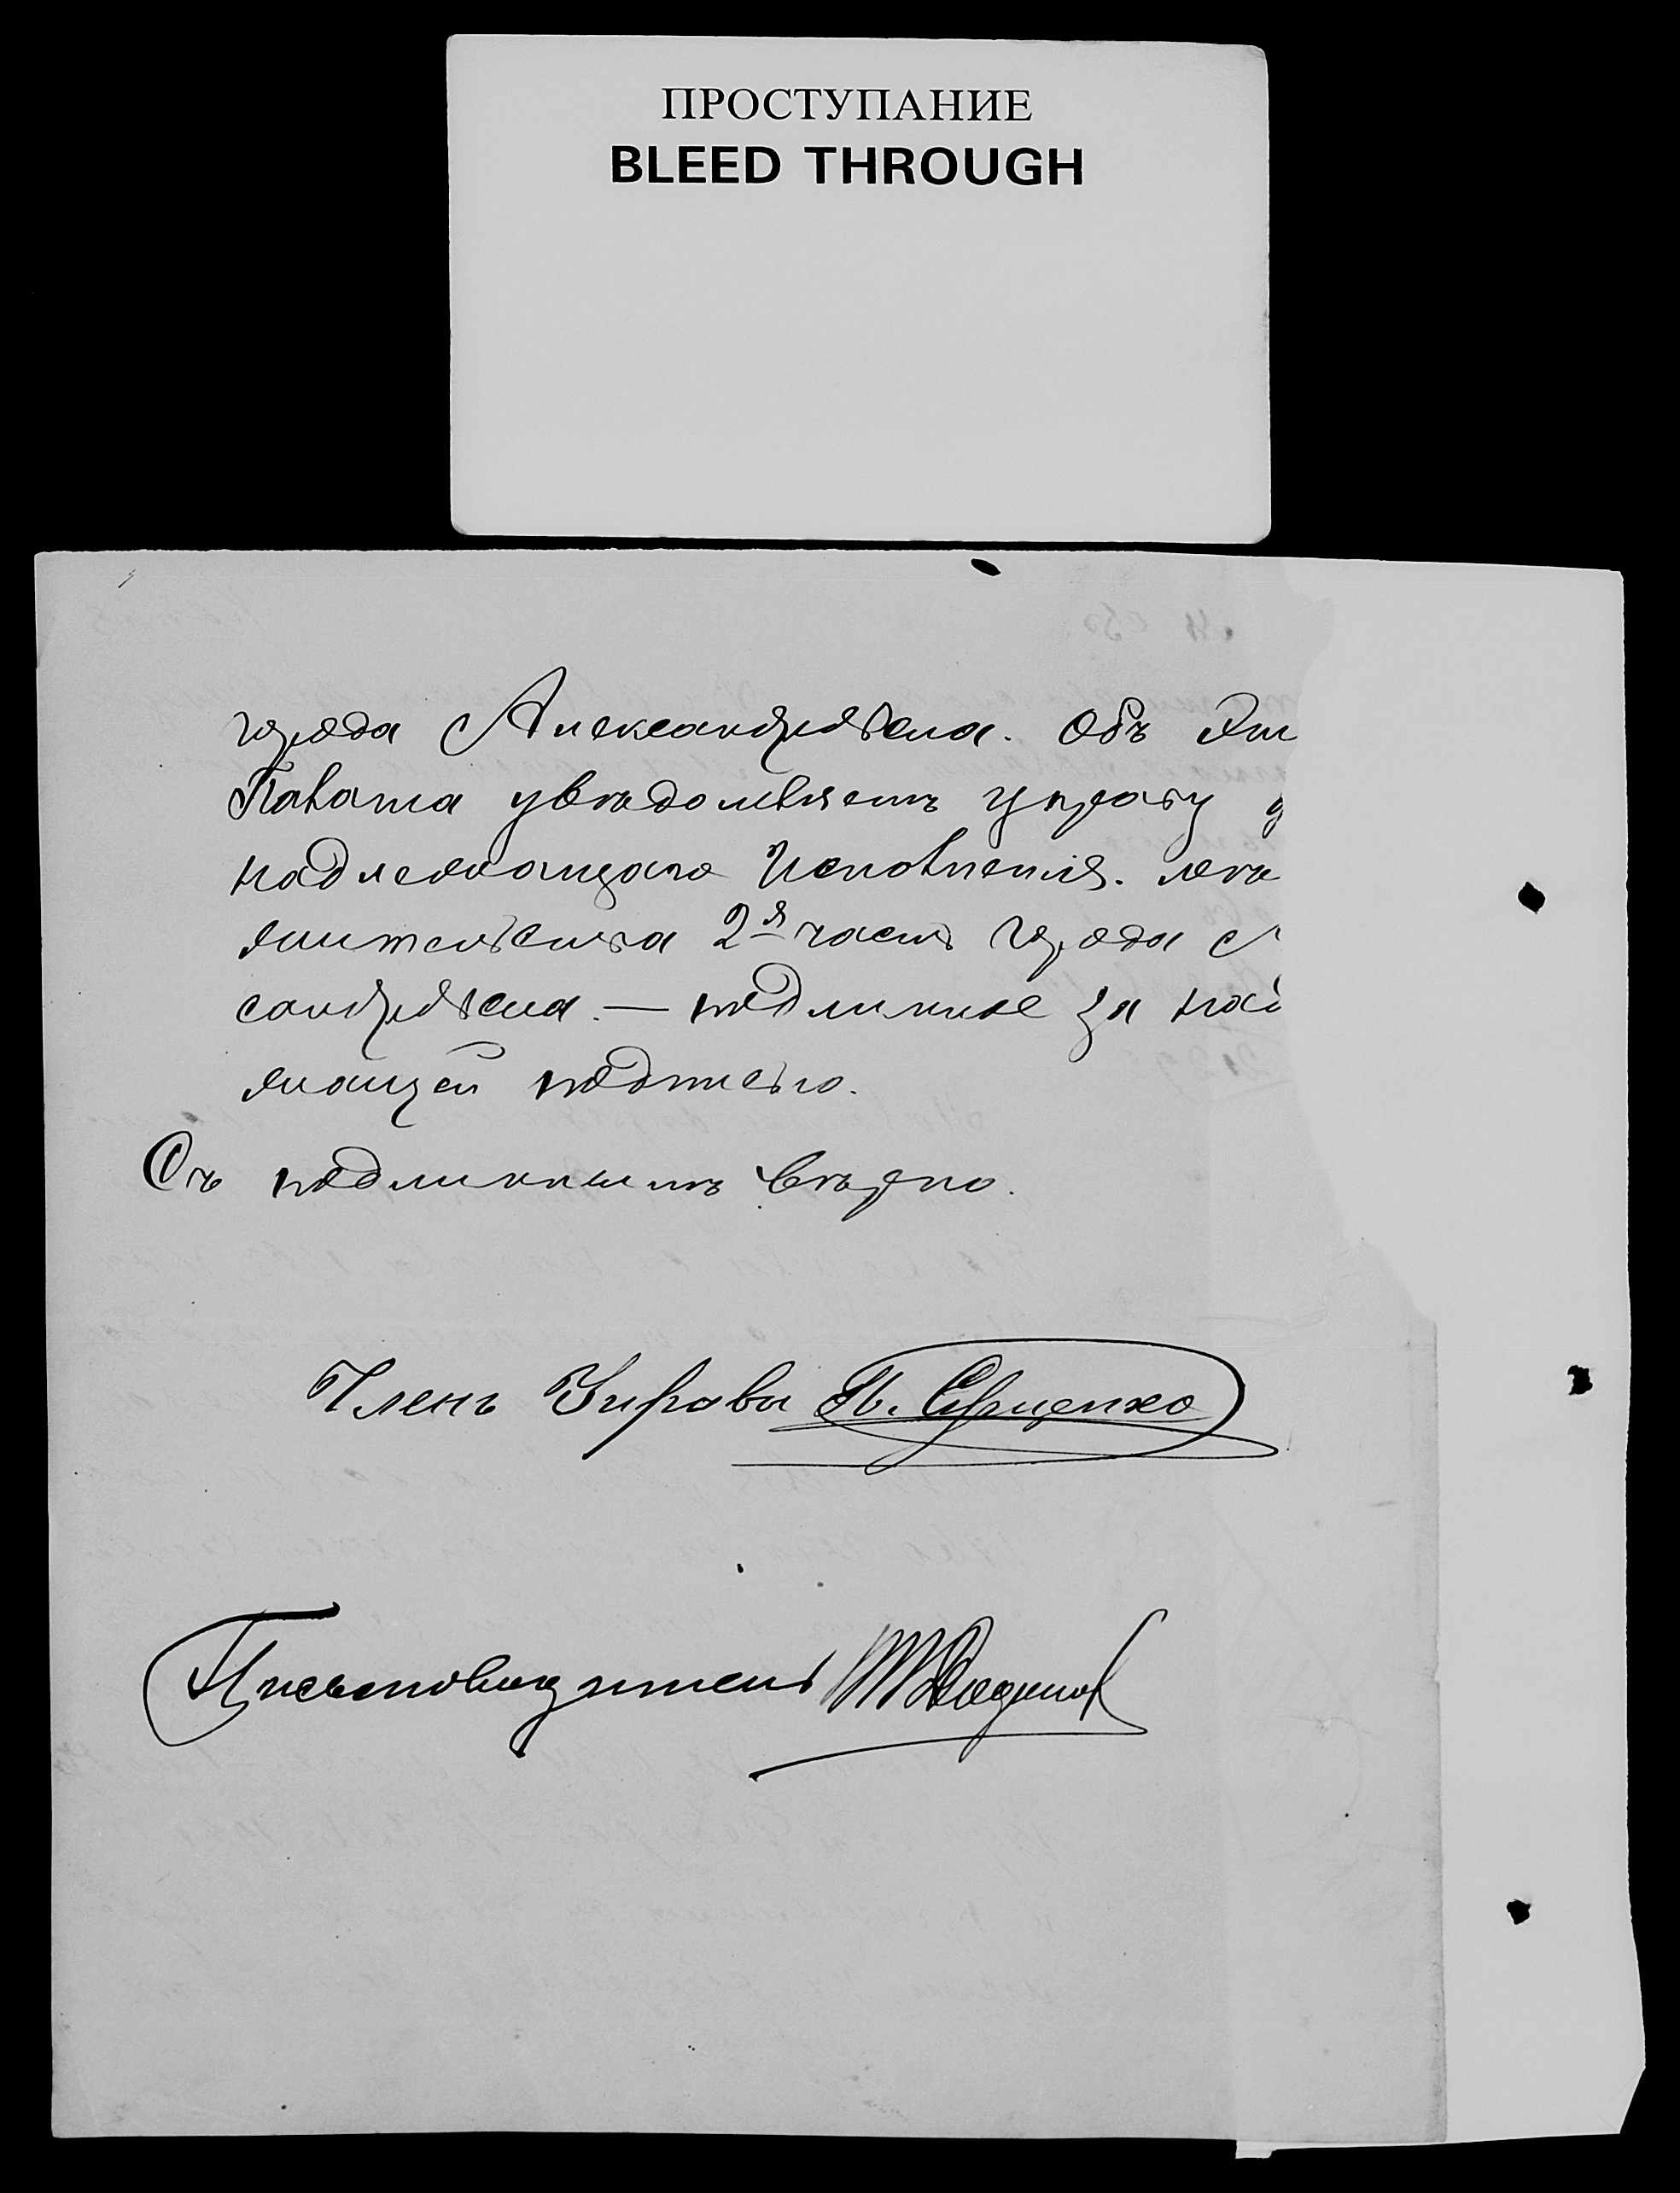 ПРОСТУПАНИЕ
BLEED THROUGH
города Александровска. Объ эт
Палата увѣдомляетъ управу д
надлежащаго исполненія. мѣс
жительства 2я часть города А
сандровска. — подлинное за над
жащей подписью.
Съ подлиннымъ вѣрно.
Членъ Управы
Письмоводитель